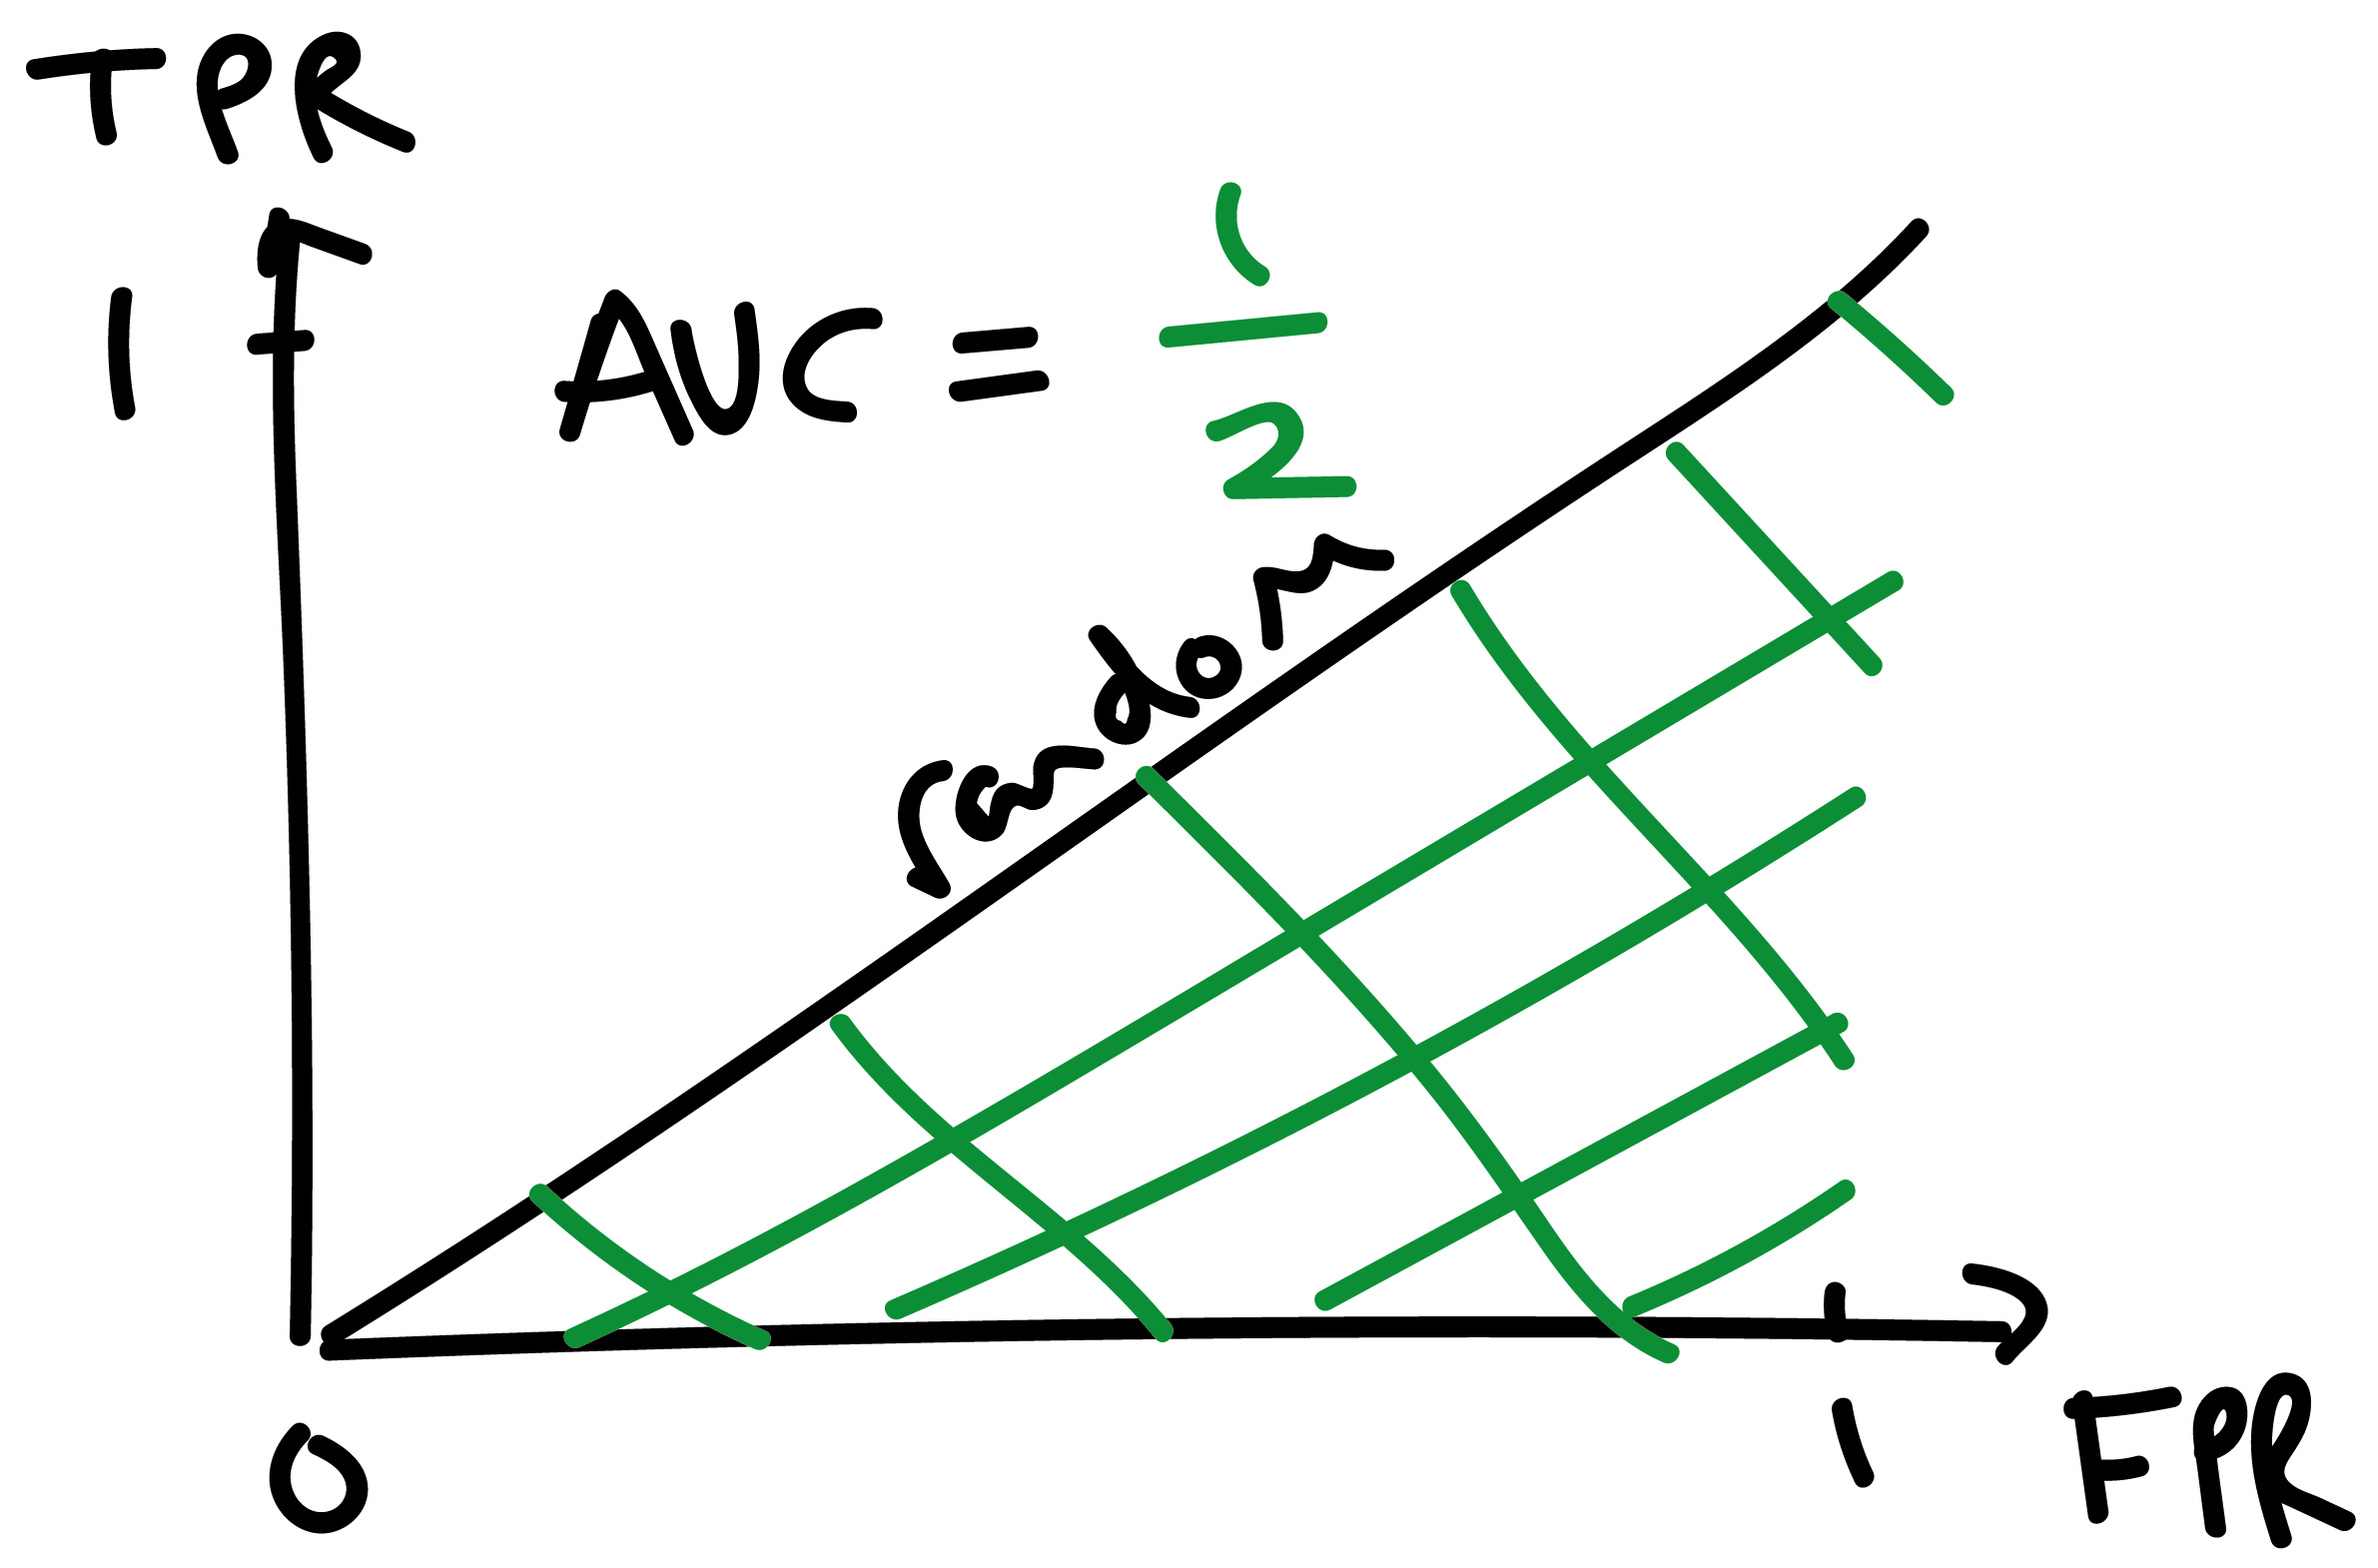 TPR
1
AUC = 1/2
random
0
1
FPR